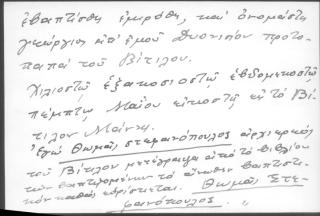 ἐβαπτίσθη ἐμυρώθη, καὶ ὀνομάσθη
γεώργιος ἀπ' ἐμοῦ Διονυσίου πρωτο-
παπᾶ τοῦ Βίτυλου.
Χιλιοστῷ ἑξακοσιοστῷ ἑβδομηκοστῷ
πέμπτῳ Μαΐου εἰκοστῇ εἰς τὸ Βί-
τυλον Μαΐνης.
ἐγὼ Θωμᾶς στεφανόπουλος ἀρχιερεὺς
τοῦ Βίτυλου μετέγραψα ἀπὸ τὸ βιβλίον
τῶν βαπτιζομένων τὸ ἄνωθεν βαπτιστι-
κὸν καθὼς εὑρίσκεται. Θωμᾶς Στε-
φανόπουλος.